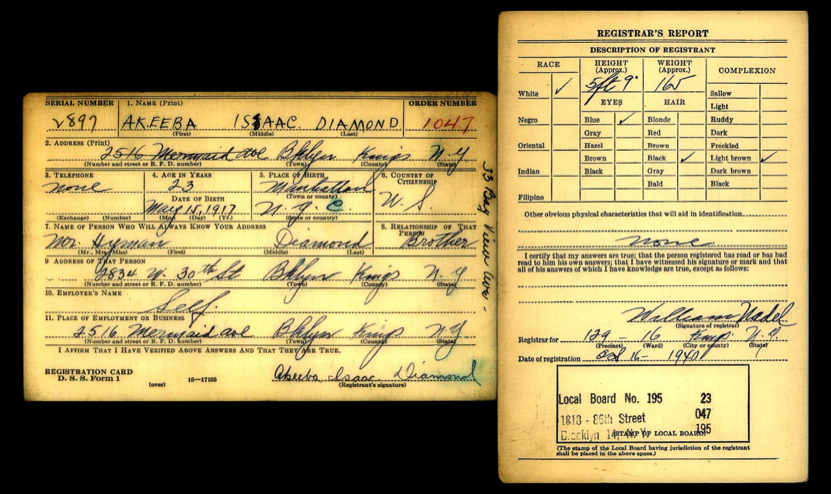 SERIAL NUMBER 1. NAME (Print) ORDER NUMBER
2897 AKEEBA ISAAC DIAMOND 1047
(First) (Middle) (Last)
2. ADDRESS (Print)
2516 Mermaid ave Bklyn Kings N-Y
(Number and street or R. F. D. number) (Town) (County) (State)
3. TELEPHONE 4. AGE IN YEARS 5. PLACE OF BIRTH 6. COUNTRY OF CITIZENSHIP
none 23 Manhattan
(Town or county)
DATE OF BIRTH
May 15, 1917 N.Y.C U.S.
(Exchange) (Number) (Mo.) (Day) (Yr.) (State or country)
7. NAME OF PERSON WHO WILL ALWAYS KNOW YOUR ADDRESS 8. RELATIONSHIP OF THAT PERSON
Mr. Hyman Diamond Brother
(Mr., Mrs., Miss) (First) (Middle) (Last)
9 ADDRESS OF THAT PERSON
2834 W. 30th St Bklyn Kings N-Y
(Number and street or R. F. D. number) (Town) (County) (State)
10. EMPLOYER'S NAME
Self.
11. PLACE OF EMPLOYMENT OR BUSINESS
2516 Mermaid ave Bklyn Kings N-Y
(Number and street or R. F. D. number) (Town) (County) (State)
I AFFIRM THAT I HAVE VERIFIED ABOVE ANSWERS AND THAT THEY ARE TRUE.
REGISTRATION CARD
D. S. S. Form 1 (over) 10—17105
Akeeba Isaac Diamond
(Registrant's signature)
Bay View Ave.
REGISTRAR'S REPORT
DESCRIPTION OF REGISTRANT
RACE HEIGHT (Approx.) WEIGHT (Approx.) COMPLEXION
White ✓ 5 ft 9" 165 Sallow
EYES HAIR Light
Negro Blue ✓ Blonde Ruddy
Gray Red Dark
Oriental Hazel Brown Freckled
Brown Black ✓ Light brown ✓
Indian Black Gray Dark brown
Bald Black
Filipino
Other obvious physical characteristics that will aid in identification
none
I certify that my answers are true; that the person registered has read or has had
read to him his own answers; that I have witnessed his signature or mark and that
all of his answers of which I have knowledge are true, except as follows:
William Nadel
(Signature of registrar)
Registrar for 129 - 16 Kings N.Y.
(Precinct) (Ward) (City or county) (State)
Date of registration Oct 16- 1940
Local Board No. 195 23
1813 - 86th Street 047
Brooklyn 14, N. Y. 195
(STAMP OF LOCAL BOARD)
(The stamp of the Local Board having jurisdiction of the registrant
shall be placed in the above space.)